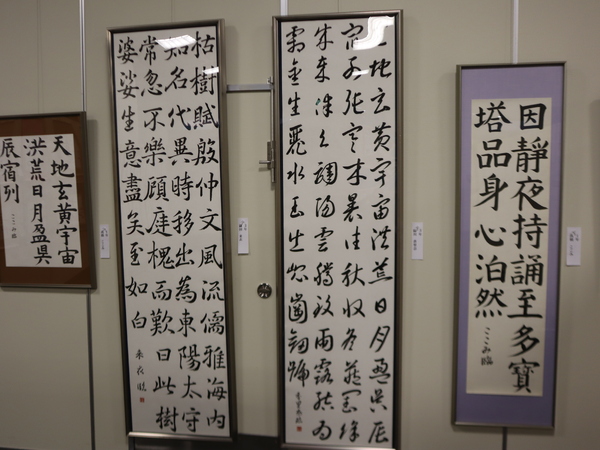 因靜夜持誦至多寶
塔品身心泊然
ここみ臨
天地玄黄宇宙洪荒日月盈昃辰
宿列張寒來暑往秋收冬蔵閏餘
成歳律呂調陽雲騰致雨露結為
霜金生麗水玉出崑崗劔號
枯樹賦殷仲文風流儒雅海内
知名代異時移出為東陽太守
常忽不樂顧庭槐而歎曰此樹
婆娑生意盡矣至如白
天地玄黄宇宙
洪荒日月盈昃
辰宿列
ここみ臨